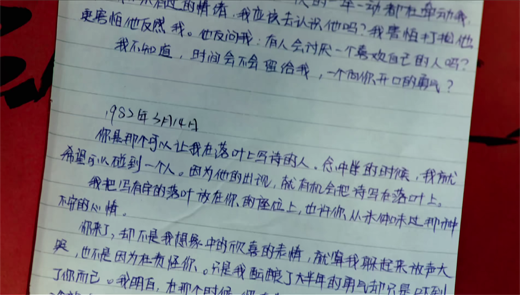 情绪,我应该去认识他吗?我害怕打扰他
更害怕他反感我。他反问我:有人会讨厌一个喜欢自己的人吗?
我不知道,时间会不会留给我,一个向你开口的勇气?
1982年3月14日
你是那个可以让我在落叶上写诗的人。念中学的时候,我就
希望可以碰到一个人。因为他的出现,就有机会把诗写在落叶上。
我把写有字的落叶放在你的座位上,也许你从未体味过那种
不安的心情。
你来了,却不是我想象中的欣喜的表情,就算我躲起来放声大
哭,也不是因为在责怪你。只是我酝酿了大半年的勇气却只是吓到
了你而已。我明白,在那个时候,你